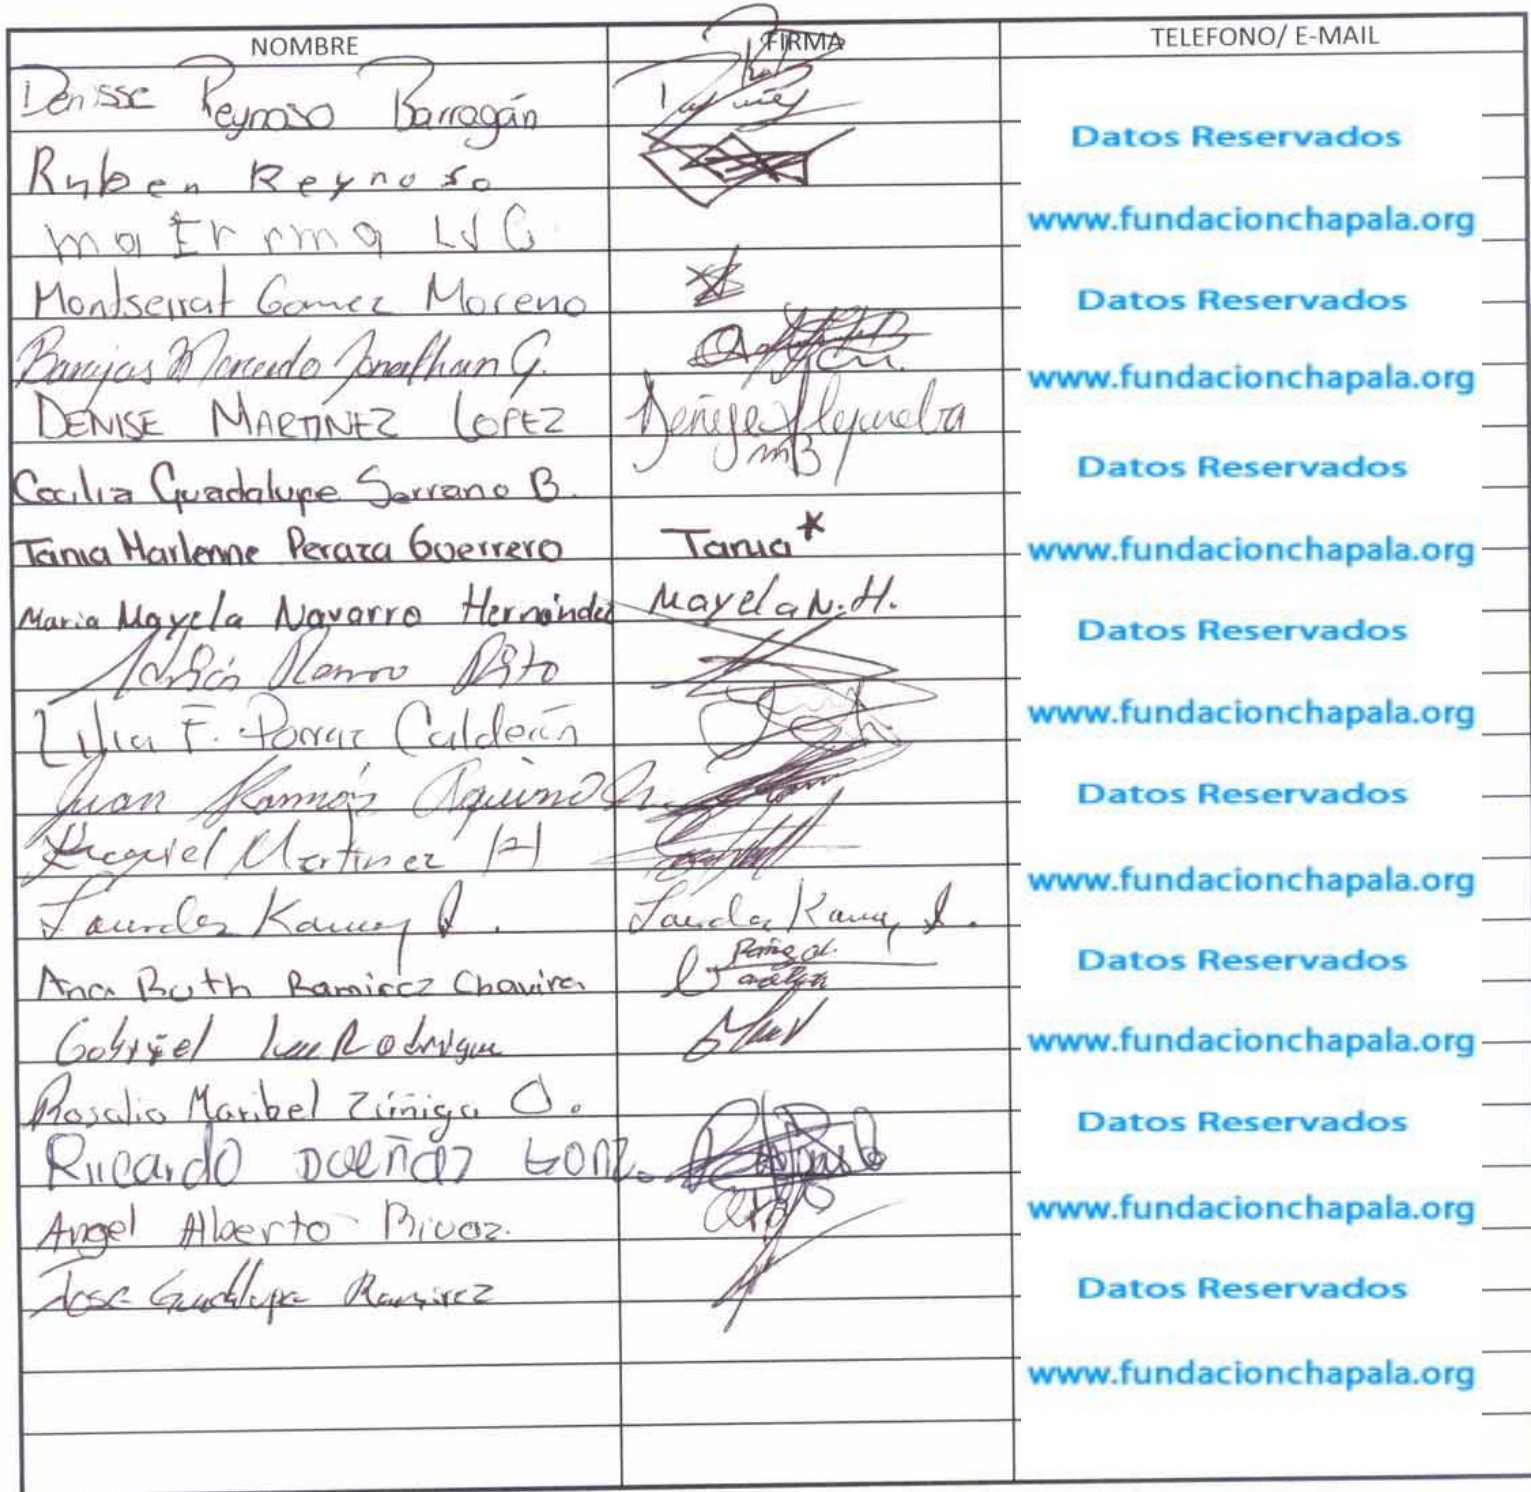 NOMBRE FIRMA TELEFONO/ E-MAIL
Denisse Reynoso Barragán
Datos Reservados
Ruben Reynoso
www.fundacionchapala.org
ma
Montserrat Gomez Moreno
Datos Reservados
Barajas Mercado Jonathan G.
www.fundacionchapala.org
DENISE MARTINEZ LOPEZ Denise Alejandra
Datos Reservados
Cecilia Guadalupe Serrano B. mB
Tania Marlenne Peraza Guerrero Tania*
www.fundacionchapala.org
Maria Mayela Navarro Hernández Mayela N. H.
Datos Reservados
Adrián
Lilia F. Porraz Calderón
www.fundacionchapala.org
Juan Ramón Aquino
Datos Reservados
Ezequiel Martinez H
www.fundacionchapala.org
Lourdes Lourdes
Datos Reservados
Ana Ruth Ramirez Chavira
Gabriel Rodrigue
www.fundacionchapala.org
Rosalia Maribel Zúñiga O.
Datos Reservados
Ricardo DUEÑAZ GONZ.
Angel Alberto Rivaz.
www.fundacionchapala.org
Jose Guadalupe Ramirez
Datos Reservados
www.fundacionchapala.org